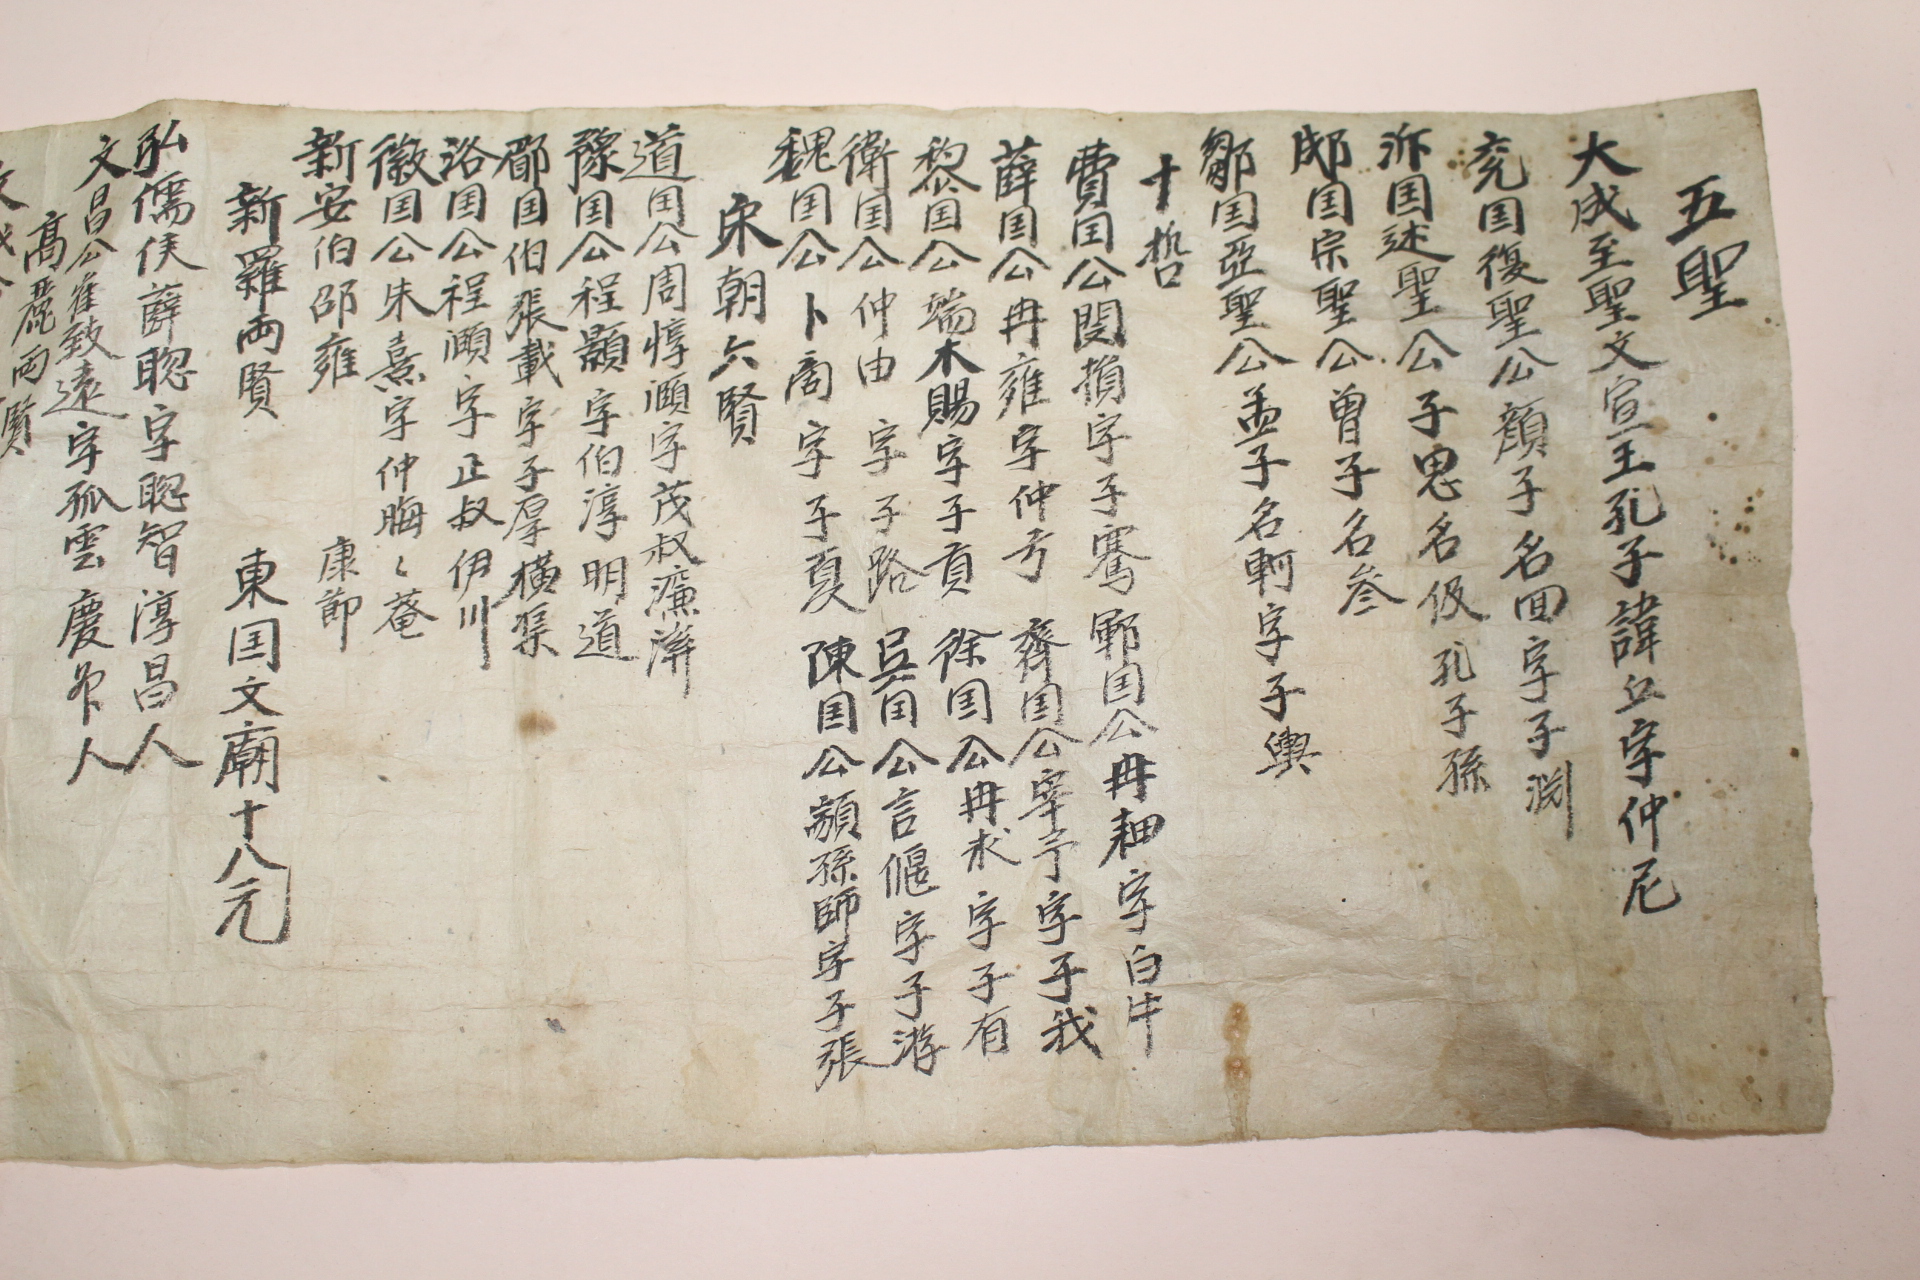 五聖
大成至聖文宣王孔子諱丘字仲尼
兗国復聖公顔子名回字子渊
沂国述聖公子思名伋孔子孫
郕国宗聖公曽子名叅
鄒国亞聖公孟子名軻字子輿
十哲
費国公閔損字子騫 鄆国公冉耕字白牛
薛国公冉雍字仲弓 齊国公宰予字子我
黎国公端木賜字子貢 徐国公冉求字子有
衛国公仲由字子路 吳国公言偃字子游
魏国公卜商字子夏 陳国公顓孫師字子張
宋朝六賢
道国公周惇頤字茂叔濂溪
豫国公程顥字伯淳明道
郿国伯張載字子厚横渠
洛国公程頤字正叔伊川
徽国公朱熹字仲晦〻菴
新安伯邵雍 康節
新羅両賢 東国文廟十八元
弘儒侯薛聡字聡智淳昌人
文昌公崔致遠字孤雲慶州人
高麗両賢